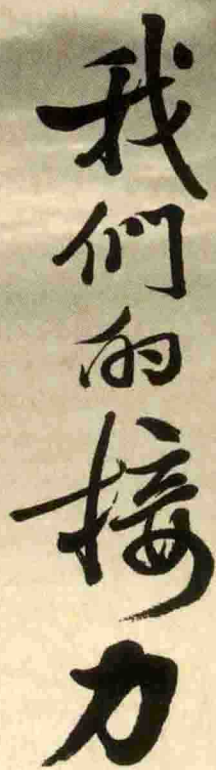 我們的接力